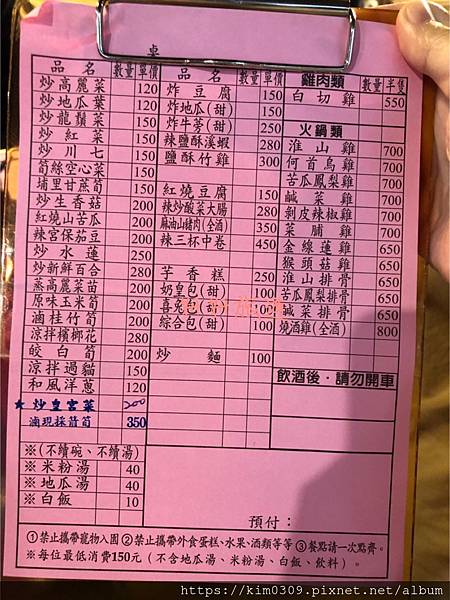 桌
品名 數量 單價 品名 數量 單價 雞肉類 數量 半隻
炒高麗菜 120
炒地瓜葉 120
炒龍鬚菜 150
炒紅菜 150
炒川七 150
筍絲空心菜 150
埔里甘蔗筍 150
炒生香菇 200
紅燒山苦瓜 200
辣宮保茄豆 200
炒水蓮 250
炒新鮮百合 280
蒸高麗菜苗 200
原味玉米筍 200
滷桂竹筍 200
涼拌檳榔花 280
皎白筍 200
涼拌過貓 150
和風洋蔥 120
★炒皇宮菜 200
滷現採箭筍 350
※(不續碗、不續湯)
※米粉湯 40
※地瓜湯 40
※白飯 10
炸豆腐 150
炸地瓜(甜) 150
炸牛蒡(甜) 250
辣鹽酥溪蝦 280
鹽酥竹雞 300
紅燒豆腐 150
辣炒酸菜大腸 280
麻油山豬肉(全酒) 350
辣三杯中卷 450
芋香糕 250
奶皇包(甜) 100
喜兔包(甜) 100
綜合包(甜) 100
炒麵 100
白切雞 550
火鍋類
淮山雞 700
何首烏雞 700
苦瓜鳳梨雞 700
鹹菜雞 700
剝皮辣椒雞 700
菜脯雞 700
金線蓮雞 650
猴頭菇雞 650
淮山排骨 650
苦瓜鳳梨排骨 650
鹹菜排骨 650
燒酒雞(全酒) 800
飲酒後·請勿開車
預付：
①禁止攜帶寵物入園 ②禁止攜帶外食蛋糕、水果、酒類等等 ③餐點請一次點齊。
※每位最低消費150元（不含地瓜湯、米粉湯、白飯、飲料）。
https://kim0309.pixnet.net/album